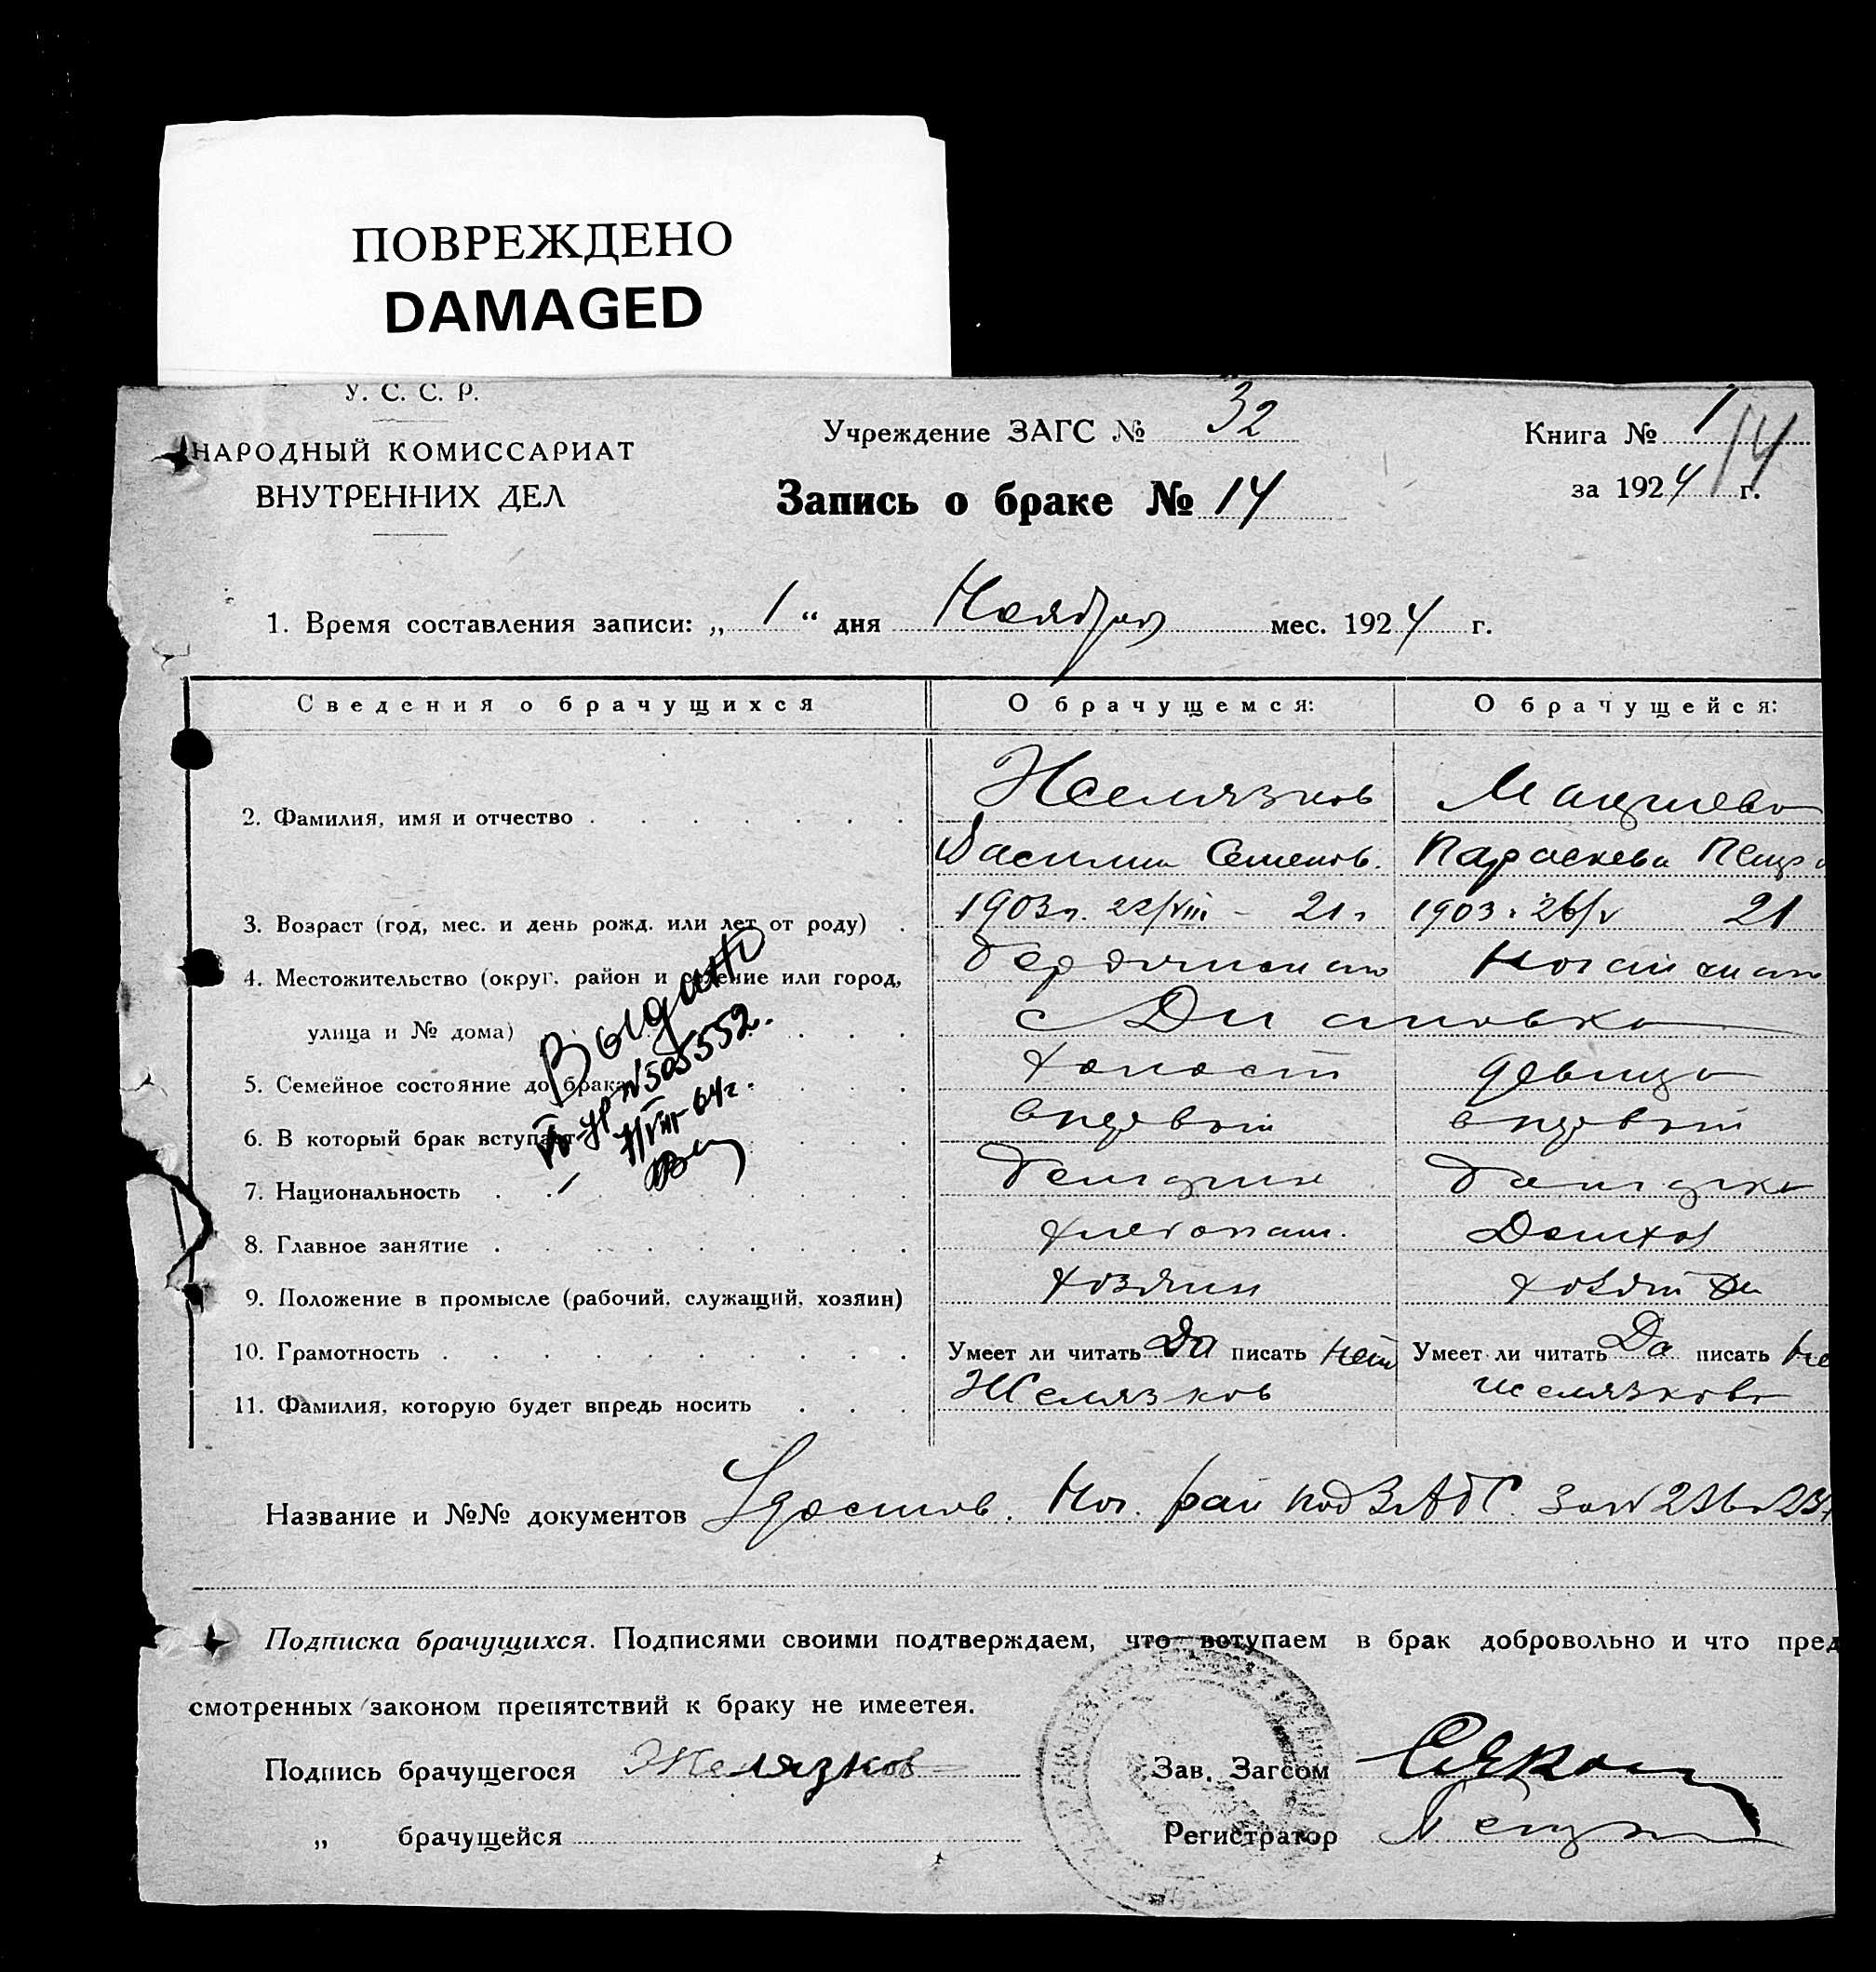 ПОВРЕЖДЕНО
DAMAGED
У. С. С. Р.
НАРОДНЫЙ КОМИССАРИАТ
ВНУТРЕННИХ ДЕЛ
Учреждение ЗАГС № 32
Книга № 1
14
Запись о браке № 14
за 1924 г.
1. Время составления записи: „ 1 “ дня Ноября мес. 1924 г.
Сведения о брачущихся О брачущемся: О брачущейся:
2. Фамилия, имя и отчество Желязков
Василий Семенов. Параскева
3. Возраст (год, мес. и день рожд. или лет от роду) 1903 г. 22/VIII – 21 г 1903 г 26/V 21
4. Местожительство (округ, район и селение или город,
улица и № дома) с Диановка
5. Семейное состояние до брака холост девица
6. В который брак вступает впервый впервый
7. Национальность болгарин болгарка
8. Главное занятие хлебопаш. Домхоз
9. Положение в промысле (рабочий, служащий, хозяин) хозяин
10. Грамотность Умеет ли читать Да писать нет Умеет ли читать Да писать не
11. Фамилия, которую будет впредь носить Желязков Желязкова
Выдано
№ 505552.
7/VIII–64г.
Название и №№ документов Удостов. Ног. рай
Подписка брачущихся. Подписями своими подтверждаем, что вступаем в брак добровольно и что пред
смотренных законом препятствий к браку не имеетея.
Подпись брачущегося Желязков Зав. Загсом
„ брачущейся Регистратор